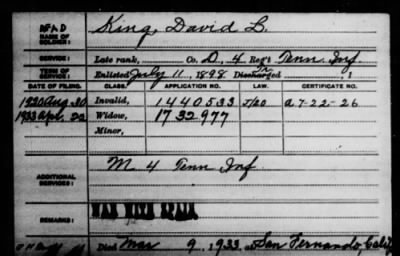 DEAD
NAME OF SOLDIER: King, David L.
SERVICE: Late rank, Co. D, 4 Reg't Tenn Inf.
TERM OF SERVICE: Enlisted July 11, 1898 Discharged , 1
DATE OF FILING. CLASS. APPLICATION NO. LAW. CERTIFICATE NO.
1920 Aug. 30 Invalid, 1440533 J/20 a 7-22-26
1933 Apl. 22 Widow, 1732977
Minor,
ADDITIONAL SERVICES: M 4 Tenn Inf
REMARKS: WAR WITH SPAIN
Died Mar 9, 1933, at San Fernando, Calif